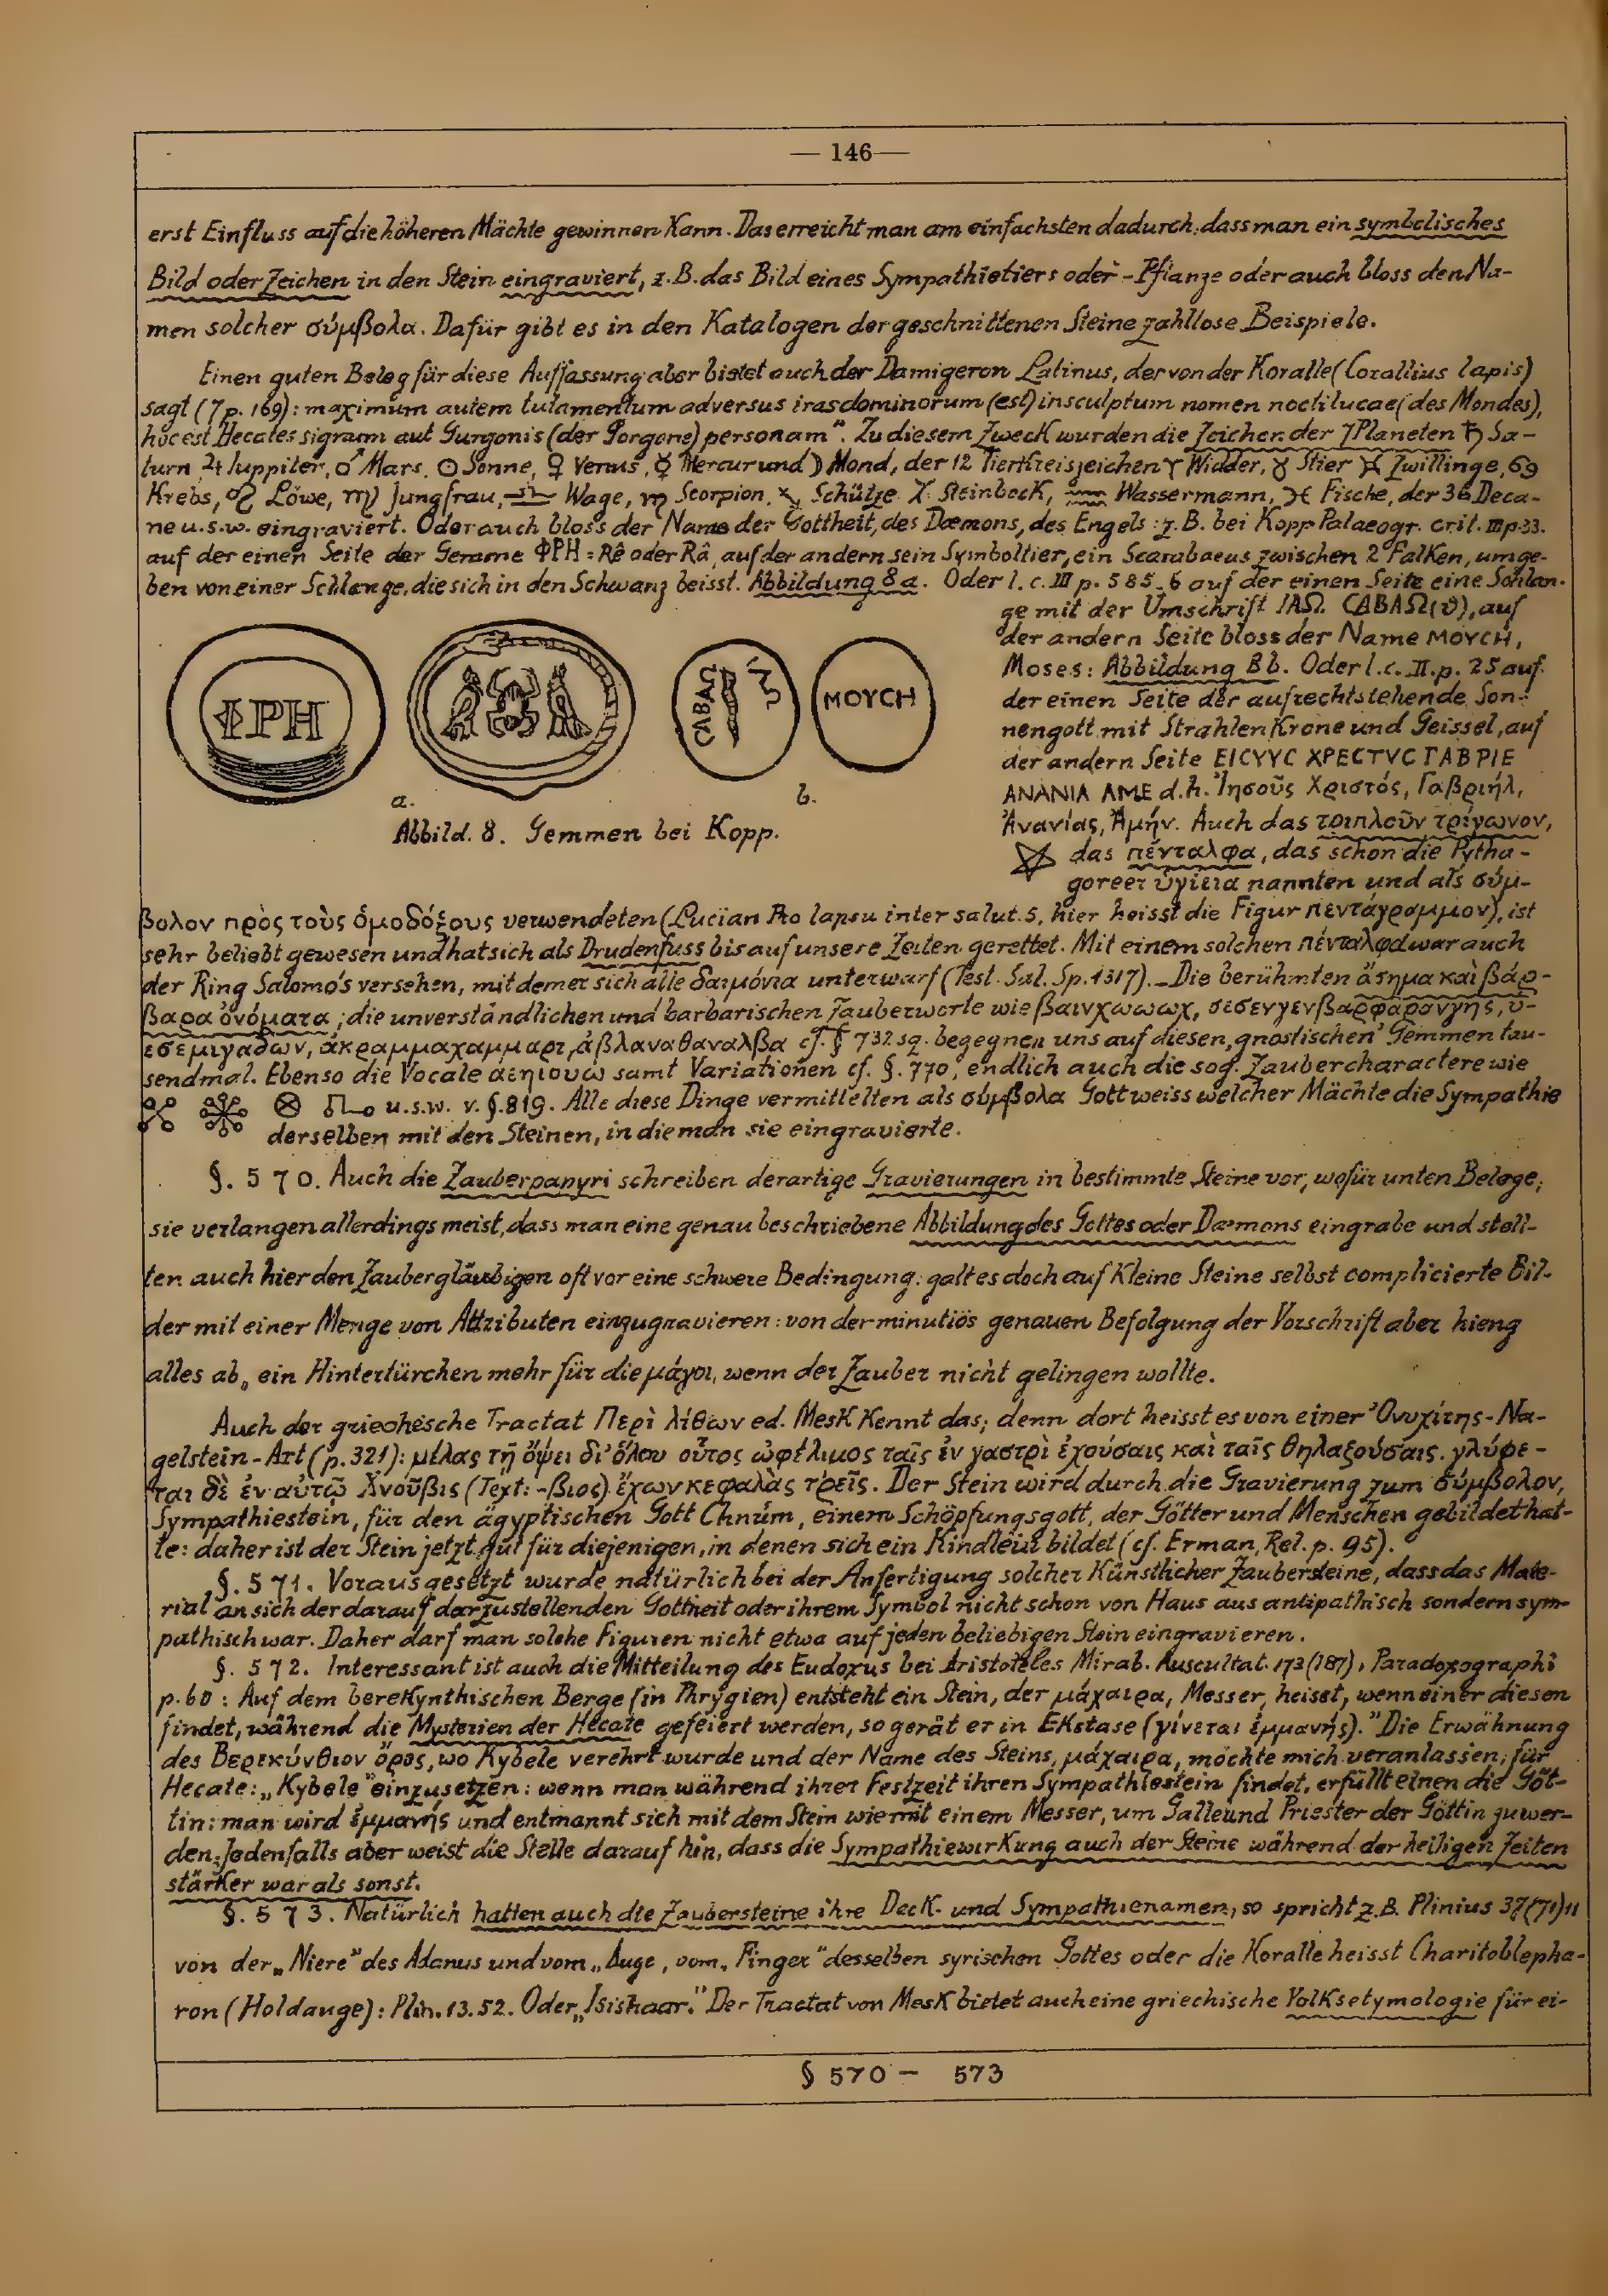 — 146 —
erst Einfluss auf die höheren Mächte gewinnen kann. Das erreicht man am einfachsten dadurch, dass man ein symbolisches
Bild oder Zeichen in den Stein eingraviert, z.B. das Bild eines Sympathietiers oder -Pflanze oder auch bloss den Na-
men solcher σύμβολα. Dafür gibt es in den Katalogen der geschnittenen Steine zahllose Beispiele.
Einen guten Beleg für diese Auffassung aber bietet auch der Damigeron Latinus, der von der Koralle (Corallius lapis)
sagt (7 p. 169): maximum autem tutamentum adversus iras dominorum (est) insculptum nomen noctilucae (des Mondes),
hoc est Hecates signum aut Gurgonis (der Gorgone) personam". Zu diesem Zweck wurden die Zeichen der 7 Planeten ♄ Sa-
turn, ♃ Iuppiter, ♂ Mars, ☉ Sonne, ♀ Venus, ☿ Mercur und ☽ Mond, der 12 Tierkreiszeichen ♈ Widder, ♉ Stier ♊ Zwillinge, ♋
Krebs, ♌ Löwe, ♍ Jungfrau, ♎ Wage, ♏ Scorpion, ♐ Schütze ♑ Steinbock, ♒ Wassermann, ♓ Fische, der 36 Deca-
ne u.s.w. eingraviert. Oder auch bloss der Name der Gottheit, des Dæmons, des Engels: z.B. bei Kopp Palaeogr. crit. III p. 33.
auf der einen Seite der Gemme ΦΡΗ = Rê oder Râ, auf der andern sein Symboltier, ein Scarabaeus zwischen 2 Falken, umge-
ben von einer Schlange, die sich in den Schwanz beisst. Abbildung 8 a. Oder l. c. III p. 585_6 auf der einen Seite eine Schlan-
ge mit der Umschrift ΙΑΩ CΑΒΑΩ(ϑ), auf
der andern Seite bloss der Name ΜΟΥCΗ,
Moses: Abbildung 8 b. Oder l.c. II. p. 25 auf
der einen Seite der aufrechtstehende Son-
nengott mit Strahlenkrone und Geissel, auf
der andern Seite ΕΙCΥΥC ΧΡΕCΤΥC ΓΑΒΡΙΕ
ΑΝΑΝΙΑ ΑΜΕ d.h. Ἰησοῦς Χριστός, Γαβριήλ,
Ἀνανίας, Ἀμήν. Auch das τριπλοῦν τρίγωνον,
das πένταλφα, das schon die Pytha-
goreer ὑγίεια nannten und als σύμ-
ΦΡΗ
CΑΒΑΩ
ΜΟΥCΗ
a.
b.
Abbild. 8. Gemmen bei Kopp.
βολον πρὸς τοὺς ὁμοδόξους verwendeten (Lucian Pro lapsu inter salut. 5, hier heisst die Figur πεντάγραμμον), ist
sehr beliebt gewesen und hat sich als Drudenfuss bis auf unsere Zeiten gerettet. Mit einem solchen πένταλφα war auch
der Ring Salomo's versehen, mit dem er sich alle δαιμόνια unterwarf (Test. Sal. Sp. 1317). _ Die berühmten ἄσημα καὶ βάρ-
βαρα ὀνόματα; die unverständlichen und barbarischen Zauberworte wie βαινχωωωχ, σεσενγενβαρφαρανγης, υ-
εσεμιγαδων, ἀκραμμαχαμμαρι, ἀβλαναθαναλβα cf. § 732 sq. begegnen uns auf diesen „gnostischen" Gemmen tau-
sendmal. Ebenso die Vocale αεηιουω samt Variationen cf. §. 770, endlich auch die sog. Zaubercharactere wie
u.s.w. v. §. 819. Alle diese Dinge vermittelten als σύμβολα Gott weiss welcher Mächte die Sympathie
derselben mit den Steinen, in die man sie eingravierte.
§. 570. Auch die Zauberpapyri schreiben derartige Gravierungen in bestimmte Steine vor, wofür unten Belege;
sie verlangen allerdings meist, dass man eine genau beschriebene Abbildung des Gottes oder Dæmons eingrabe und stell-
ten auch hier den Zaubergläubigen oft vor eine schwere Bedingung: galt es doch auf kleine Steine selbst complicierte Bil-
der mit einer Menge von Attributen einzugravieren: von der minutiös genauen Befolgung der Vorschrift aber hieng
alles ab, ein Hintertürchen mehr für die μάγοι, wenn der Zauber nicht gelingen wollte.
Auch der griechische Tractat Περὶ λίθων ed. Mesk kennt das; denn dort heisst es von einer Ὀνυχίτης-Na-
gelstein-Art (p. 321): μέλας τῇ ὄψει δι' ὅλου οὗτος ὠφέλιμος ταῖς ἐν γαστρὶ ἐχούσαις καὶ ταῖς θηλαζούσαις. γλύφε-
ται δὲ ἐν αὐτῷ Χνοῦβις (Text: -βιος) ἔχων κεφαλὰς τρεῖς. Der Stein wird durch die Gravierung zum σύμβολον,
Sympathiestein, für den ägyptischen Gott Chnum, einem Schöpfungsgott, der Götter und Menschen gebildet hat-
te: daher ist der Stein jetzt gut für diejenigen, in denen sich ein Kindlein bildet (cf. Erman, Rel. p. 95).
§. 571. Vorausgesetzt wurde natürlich bei der Anfertigung solcher künstlicher Zaubersteine, dass das Mate-
rial an sich der darauf darzustellenden Gottheit oder ihrem Symbol nicht schon von Haus aus antipathisch sondern sym-
pathisch war. Daher darf man solche Figuren nicht etwa auf jeden beliebigen Stein eingravieren.
§. 572. Interessant ist auch die Mitteilung des Eudoxus bei Aristoteles Mirab. Auscultat. 173 (187), Paradoxographi
p. 60: Auf dem berekynthischen Berge (in Phrygien) entsteht ein Stein, der μάχαιρα, Messer, heisst, wenn einer diesen
findet, während die Mysterien der Hecate gefeiert werden, so gerät er in Ekstase (γίνεται ἐμμανής)." Die Erwähnung
des Βερεκύνθιον ὄρος, wo Kybele verehrt wurde und der Name des Steins, μάχαιρα, möchte mich veranlassen, für
Hecate: „Kybele" einzusetzen: wenn man während ihrer Festzeit ihren Sympathiestein findet, erfüllt einen die Göt-
tin: man wird ἐμμανής und entmannt sich mit dem Stein wie mit einem Messer, um Galle und Priester der Göttin zu wer-
den. Jedenfalls aber weist die Stelle darauf hin, dass die Sympathiewirkung auch der Steine während der heiligen Zeiten
stärker war als sonst.
§. 573. Natürlich hatten auch die Zaubersteine ihre Deck- und Sympathienamen, so spricht z.B. Plinius 37 (71) 11
von der „Niere" des Adanus und vom „Auge, vom „Finger" desselben syrischen Gottes oder die Koralle heisst Charitoblepha-
ron (Holdauge): Plin. 13. 52. Oder „Isishaar." Der Tractat von Mesk bietet auch eine griechische Volksetymologie für ei-
§ 570 — 573